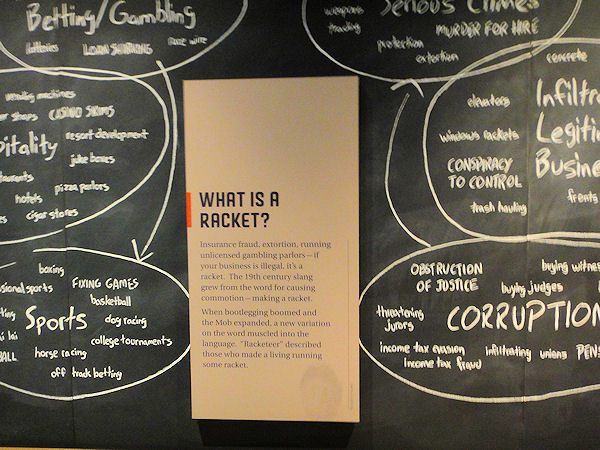 Betting/Gambling
lotteries LOAN SHARKING race wire
vending machines
CASINO SKIMS
resort development
juke boxes
hotels pizza parlors
cigar stores
boxing
FIXING GAMES
basketball
Sports dog racing
college tournaments
horse racing
off track betting
WHAT IS A
RACKET?
Insurance fraud, extortion, running
unlicensed gambling parlors—if
your business is illegal, it's a
racket. The 19th century slang
grew from the word for causing
commotion—making a racket.
When bootlegging boomed and
the Mob expanded, a new variation
on the word muscled into the
language. "Racketeer" described
those who made a living running
some racket.
Serious Crimes
weapons
trading
MURDER FOR HIRE
protection
extortion
concrete
elevators
windows rackets
CONSPIRACY
TO CONTROL
trash hauling
fronts
OBSTRUCTION
OF JUSTICE
buying judges
threatening
jurors
CORRUPTION
income tax evasion infiltrating unions
income tax fraud